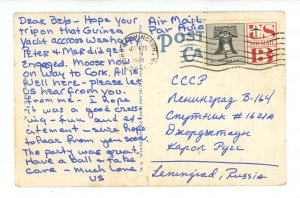 Dear Bzb - Hope your
trip on that Guinea
Yacht across was happy.
Peter & Maridger
Engaged. Moose now
on way to Cork. All is
Well here - please let
us hear from you.
From me - I hope
it was a good cross-
ing - fun and ex-
citement - sure hope
to hear from you soon.
The party was great.
Have a ball & take
care - Much love,
US
Air Mail
Par Avion
Post
CA
US
AIR MAIL
СССР
Ленинград В-164
Спутник # 1621А
Джорджтаун
Карол Русс
Leningrad, Russia